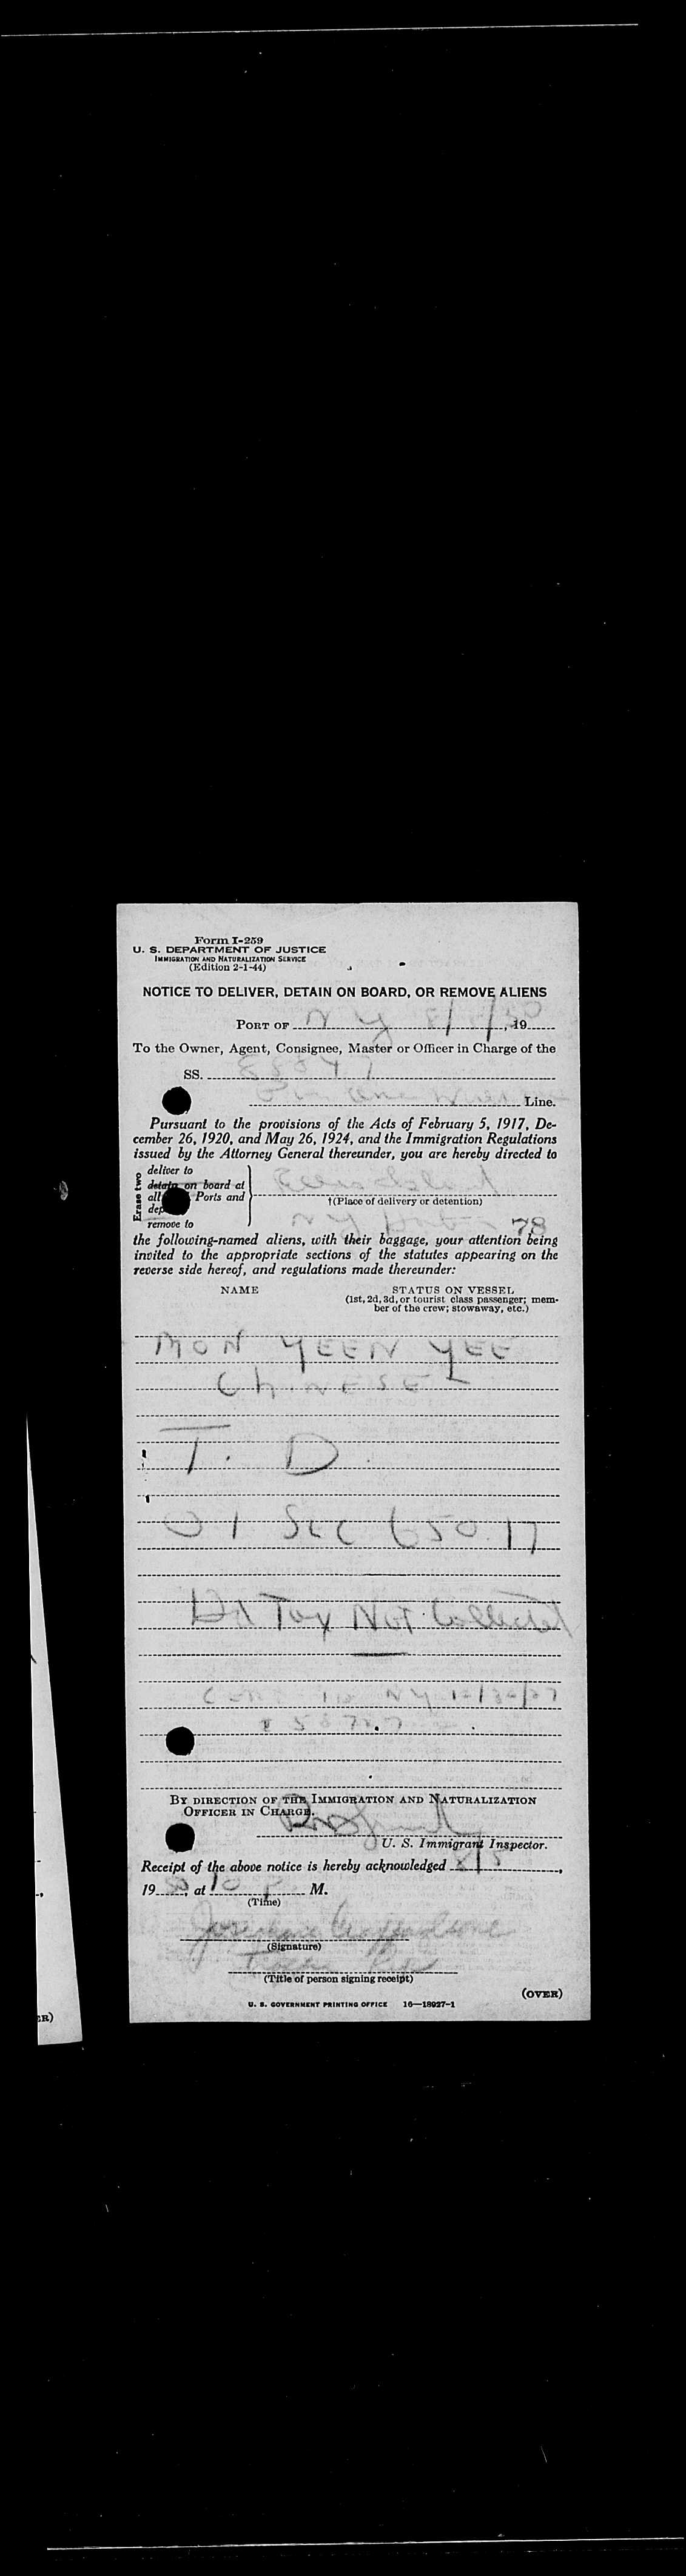 Form I-259
U. S. DEPARTMENT OF JUSTICE
IMMIGRATION AND NATURALIZATION SERVICE
(Edition 2-1-44)
NOTICE TO DELIVER, DETAIN ON BOARD, OR REMOVE ALIENS
PORT OF N Y 8/ /50, 19
To the Owner, Agent, Consignee, Master or Officer in Charge of the
SS. 88847
Line.
Pursuant to the provisions of the Acts of February 5, 1917, De-
cember 26, 1920, and May 26, 1924, and the Immigration Regulations
issued by the Attorney General thereunder, you are hereby directed to
Erase two
deliver to
detain on board at
all Ports and
dep
remove to
Ellis Island
†(Place of delivery or detention)
NY 78
the following-named aliens, with their baggage, your attention being
invited to the appropriate sections of the statutes appearing on the
reverse side hereof, and regulations made thereunder:
NAME
STATUS ON VESSEL
(1st, 2d, 3d, or tourist class passenger; mem-
ber of the crew; stowaway, etc.)
MON YEEN YEE
CHINESE
T. D.
01 Sec 650.17
Hd Tax Not Collected
NY
BY DIRECTION OF THE IMMIGRATION AND NATURALIZATION
OFFICER IN CHARGE.
U. S. Immigrant Inspector.
Receipt of the above notice is hereby acknowledged 8/5,
1950, at 10 P M.
(Time)
(Signature)
(Title of person signing receipt)
(OVER)
U. S. GOVERNMENT PRINTING OFFICE 16—18927-1
ER)